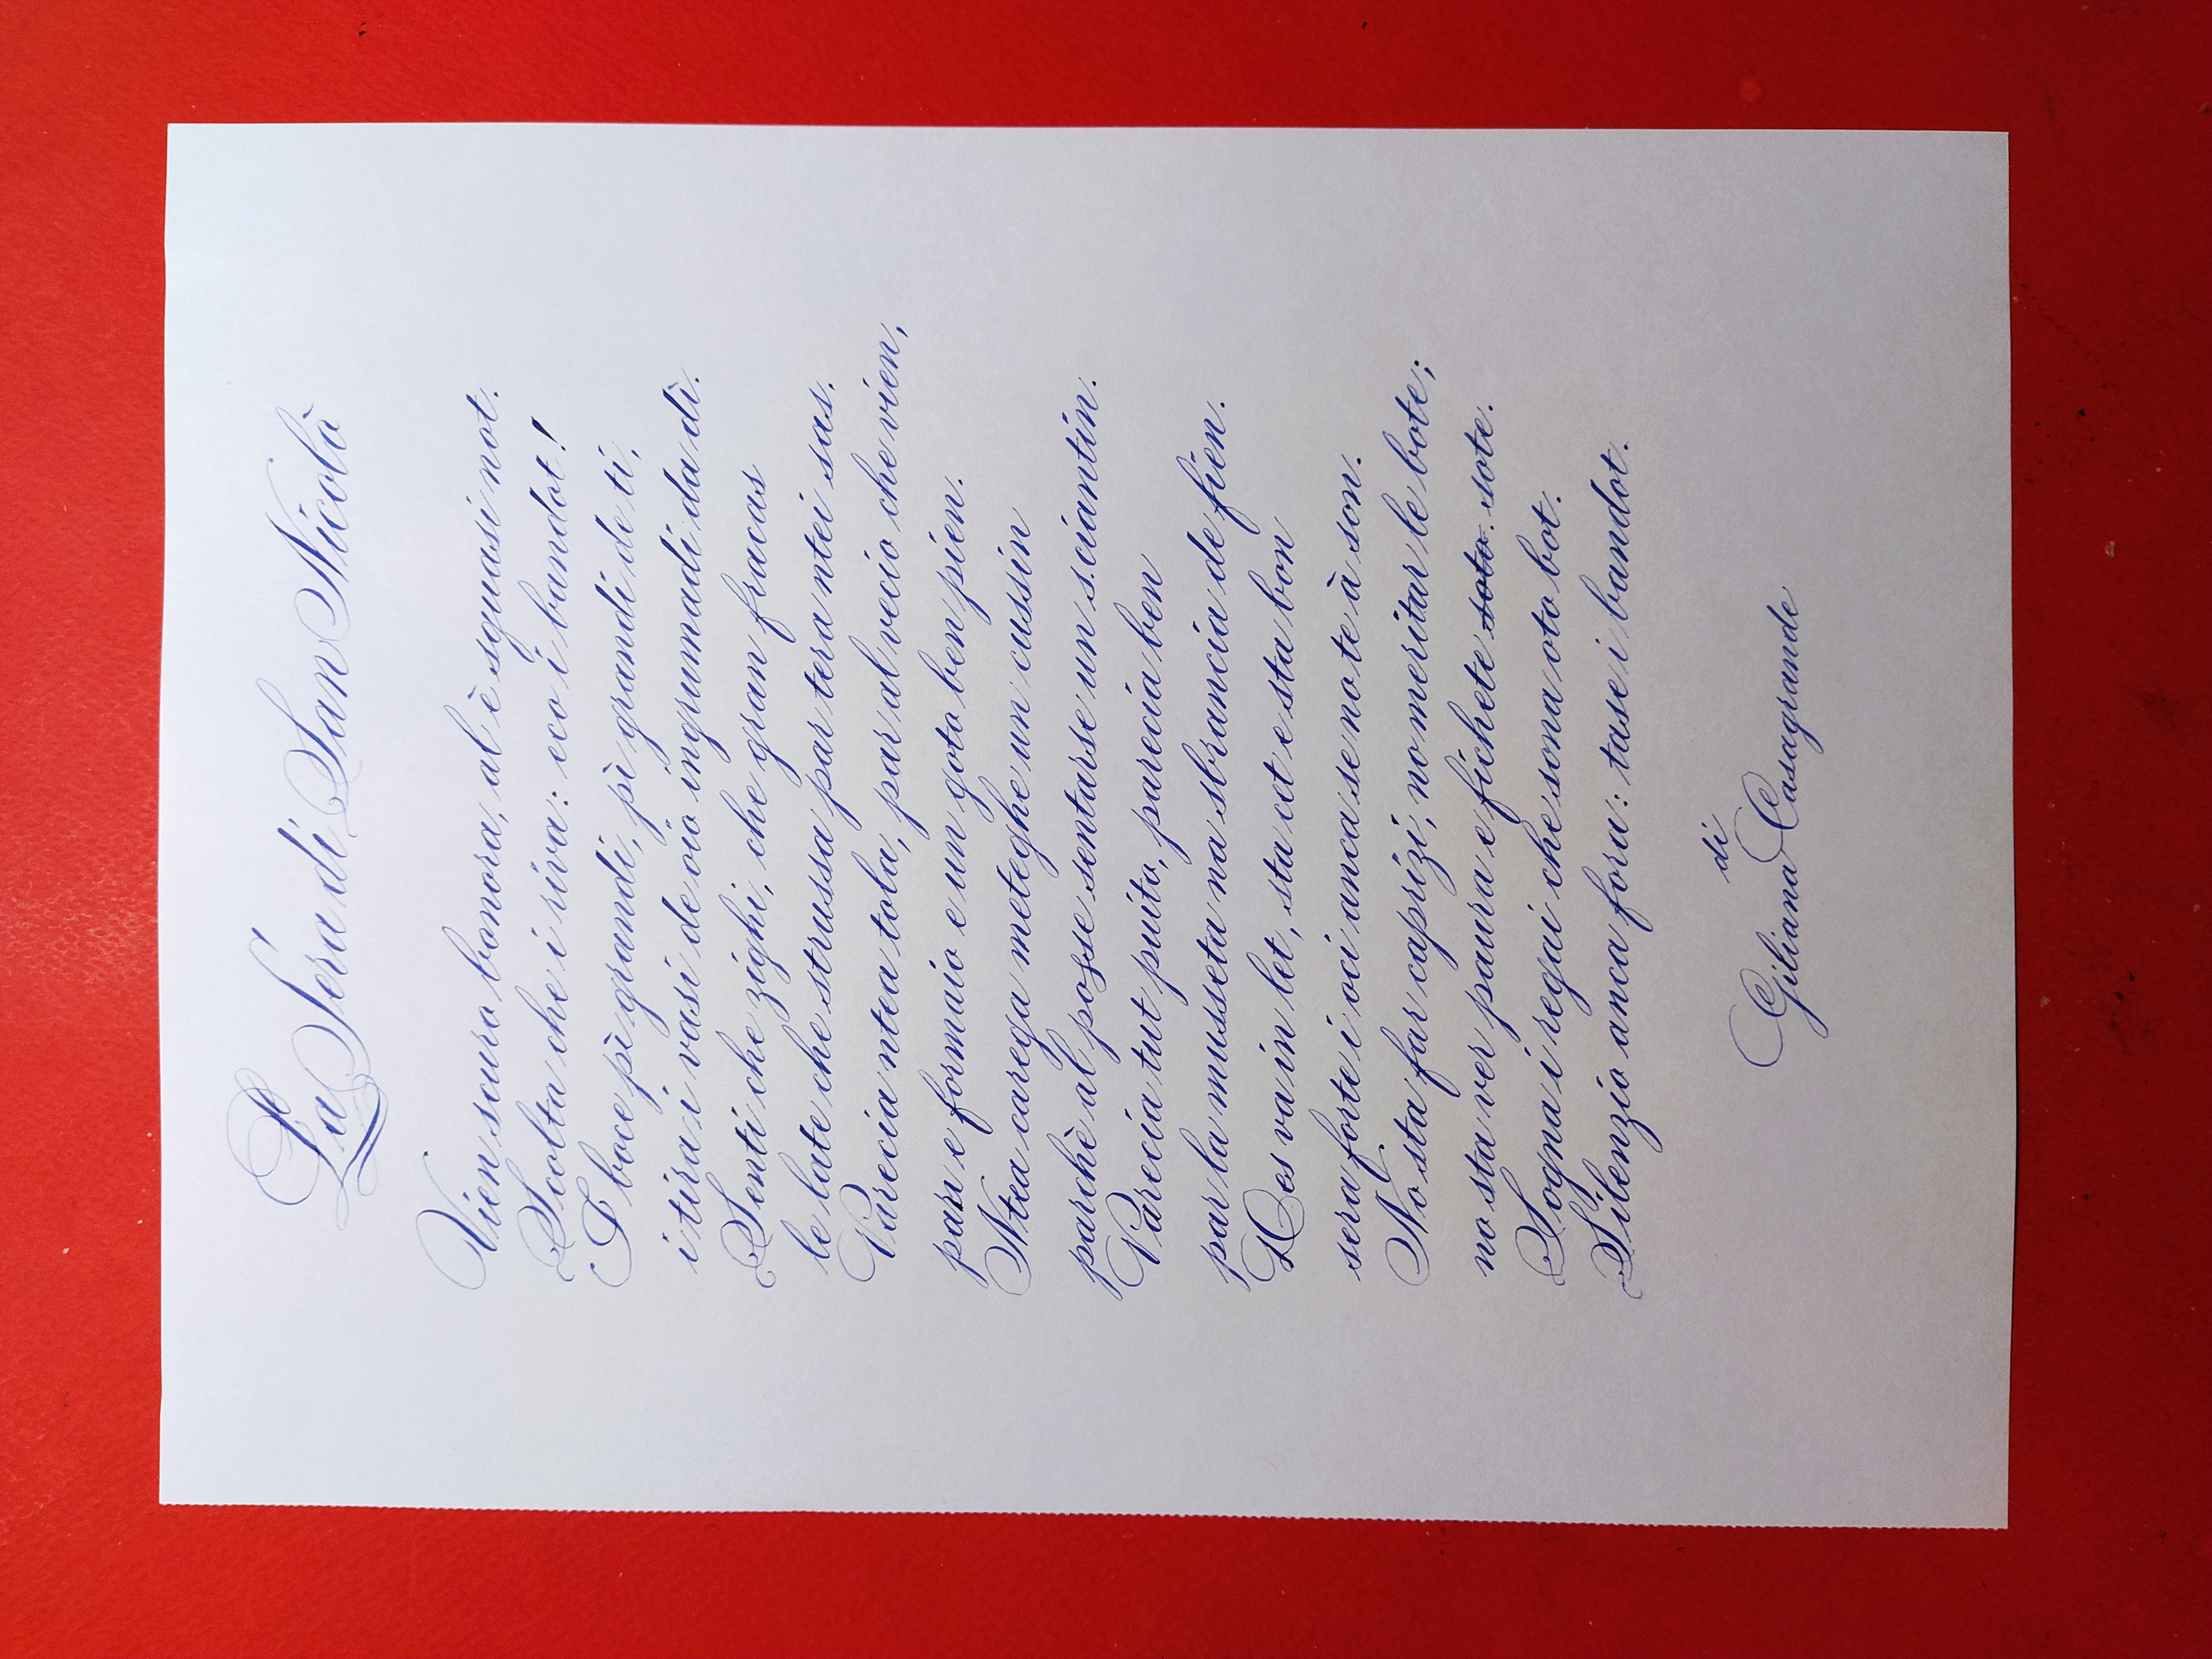 La Sera di San Nicolò
Vien scuro bonora, al è squasi not.
Scolta che i riva: eco i bandot!
I boce pì grandi, pì grandi de ti,
i tira i vasi de oio ingrumadi da dì.
Senti che zighi, che gran fracas
le late che strussa par tera ntei sas.
Parecia ntea tola, par al vecio che vien,
pan e formaio e un goto ben pien.
Ntea carega meteghe un cussin
parchè al posse sentarse un sciantin.
Parecia tut puito, parecia ben
par la musseta na sbrancia de fien.
Des va in let, sta cet e sta bon
sera forte i oci anca se no te à son.
No sta far caprizi, no meritar le bote;
no sta ver paura e fichete soto. sote.
Sogna i regai che sona oto bot.
Silenzio anca fora: tase i bandot.
di
Giliana Casagrande